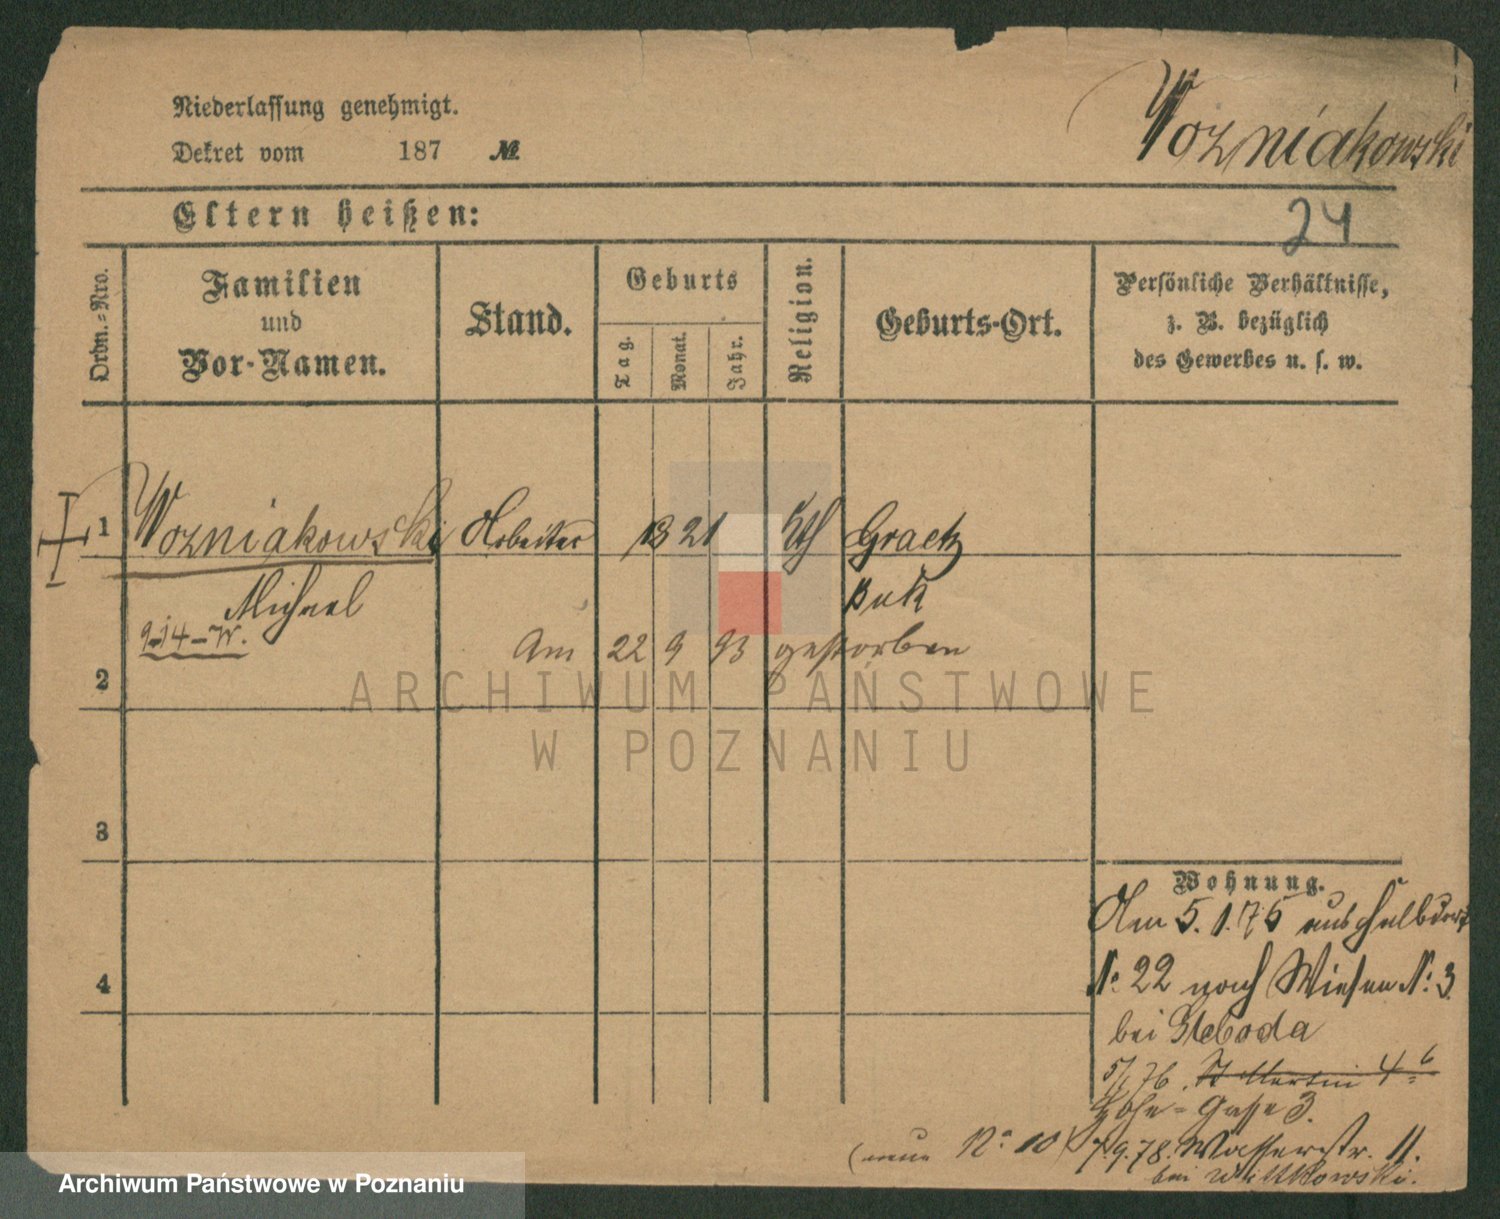 Niederlassung genehmigt.
Dekret vom 187 №
Wozniakowski
Eltern heißen:
24
Ordn.-Nro.
Familien
und
Vor-Namen.
Stand.
Geburts
Tag.
Monat.
Jahr.
Religion.
Geburts-Ort.
Persönliche Verhältnisse,
z. B. bezüglich
des Gewerbes u. s. w.
1 Wozniakowski Arbeiter 21 kth Graetz
Michael Buk
9-14-W.
Am 22 9 93 gestorben
2
ARCHIWUM PAŃSTWOWE
W POZNANIU
3
Wohnung.
Am 5.1.75 aus Halbdorf
4
No. 22 nach Wiesen No. 3
bei Sleboda
St Martin 4
Gasse 3.
(neue No 10) 7.9.78. Wasserstr. 11.
bei Wittkowski.
Archiwum Państwowe w Poznaniu